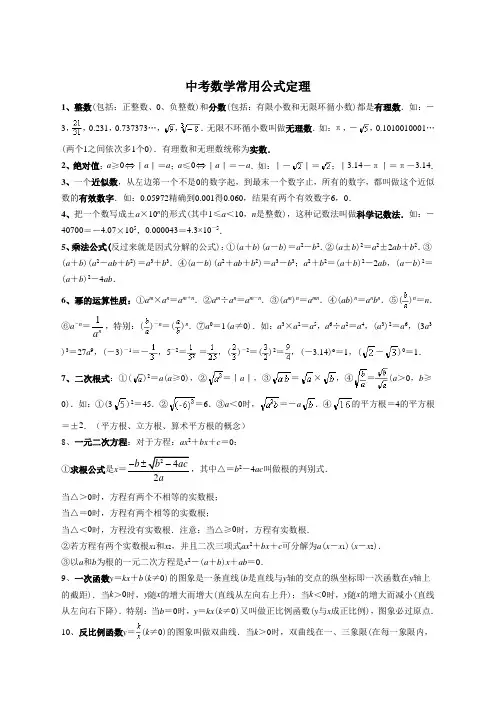 中考数学常用公式定理
1、整数(包括：正整数、0、负整数)和分数(包括：有限小数和无限环循小数)都是有理数．如：－
3，，0.231，0.737373…，，．无限不环循小数叫做无理数．如：π，－，0.1010010001…
(两个1之间依次多1个0)．有理数和无理数统称为实数．
2、绝对值：a≥0⇔丨a丨＝a；a≤0⇔丨a丨＝－a．如：丨－√2丨＝√2；丨3.14－π丨＝π－3.14．
3、一个近似数，从左边第一个不是0的数字起，到最末一个数字止，所有的数字，都叫做这个近似
数的有效数字．如：0.05972精确到0.001得0.060，结果有两个有效数字6，0．
4、把一个数写成±a×10ⁿ的形式(其中1≤a＜10，n是整数)，这种记数法叫做科学记数法．如：－
40700＝－4.07×10⁵，0.000043＝4.3×10⁻⁵．
5、乘法公式(反过来就是因式分解的公式)：①(a＋b)(a－b)＝a²－b²．②(a±b)²＝a²±2ab＋b²．③
(a＋b)(a²－ab＋b²)＝a³＋b³．④(a－b)(a²＋ab＋b²)＝a³－b³；a²＋b²＝(a＋b)²－2ab，(a－b)²＝
(a＋b)²－4ab．
6、幂的运算性质：①aᵐ×aⁿ＝aᵐ⁺ⁿ．②aᵐ÷aⁿ＝aᵐ⁻ⁿ．③(aᵐ)ⁿ＝aᵐⁿ．④(ab)ⁿ＝aⁿbⁿ．⑤(b/a)ⁿ＝n．
⑥a⁻ⁿ＝1/aⁿ，特别：()⁻ⁿ＝()ⁿ．⑦a⁰＝1(a≠0)．如：a³×a²＝a⁵，a⁶÷a²＝a⁴，(a³)²＝a⁶，(3a³
)³＝27a⁹，(－3)⁻¹＝－1/3，5⁻²＝1/5²＝1/25，(2/3)⁻²＝(3/2)²＝9/4，(－3.14)º＝1，(√2－√3)⁰＝1．
7、二次根式：①(√a)²＝a(a≥0)，②√a²＝丨a丨，③√ab＝√a×√b，④√(b/a)＝√b/√a(a＞0，b≥
0)．如：①(3√5)²＝45．②√(-6)²＝6．③a＜0时，√a²b＝－a√b．④√16的平方根＝4的平方根
＝±2．（平方根、立方根、算术平方根的概念）
8、一元二次方程：对于方程：ax²＋bx＋c＝0：
①求根公式是x＝(−b±√(b²−4ac))/2a，其中△＝b²－4ac叫做根的判别式．
当△＞0时，方程有两个不相等的实数根；
当△＝0时，方程有两个相等的实数根；
当△＜0时，方程没有实数根．注意：当△≥0时，方程有实数根．
②若方程有两个实数根x₁和x₂，并且二次三项式ax²＋bx＋c可分解为a(x－x₁)(x－x₂)．
③以a和b为根的一元二次方程是x²－(a＋b)x＋ab＝0．
9、一次函数y＝kx＋b(k≠0)的图象是一条直线(b是直线与y轴的交点的纵坐标即一次函数在y轴上
的截距)．当k＞0时，y随x的增大而增大(直线从左向右上升)；当k＜0时，y随x的增大而减小(直线
从左向右下降)．特别：当b＝0时，y＝kx(k≠0)又叫做正比例函数(y与x成正比例)，图象必过原点．
10、反比例函数y＝k/x(k≠0)的图象叫做双曲线．当k＞0时，双曲线在一、三象限(在每一象限内，